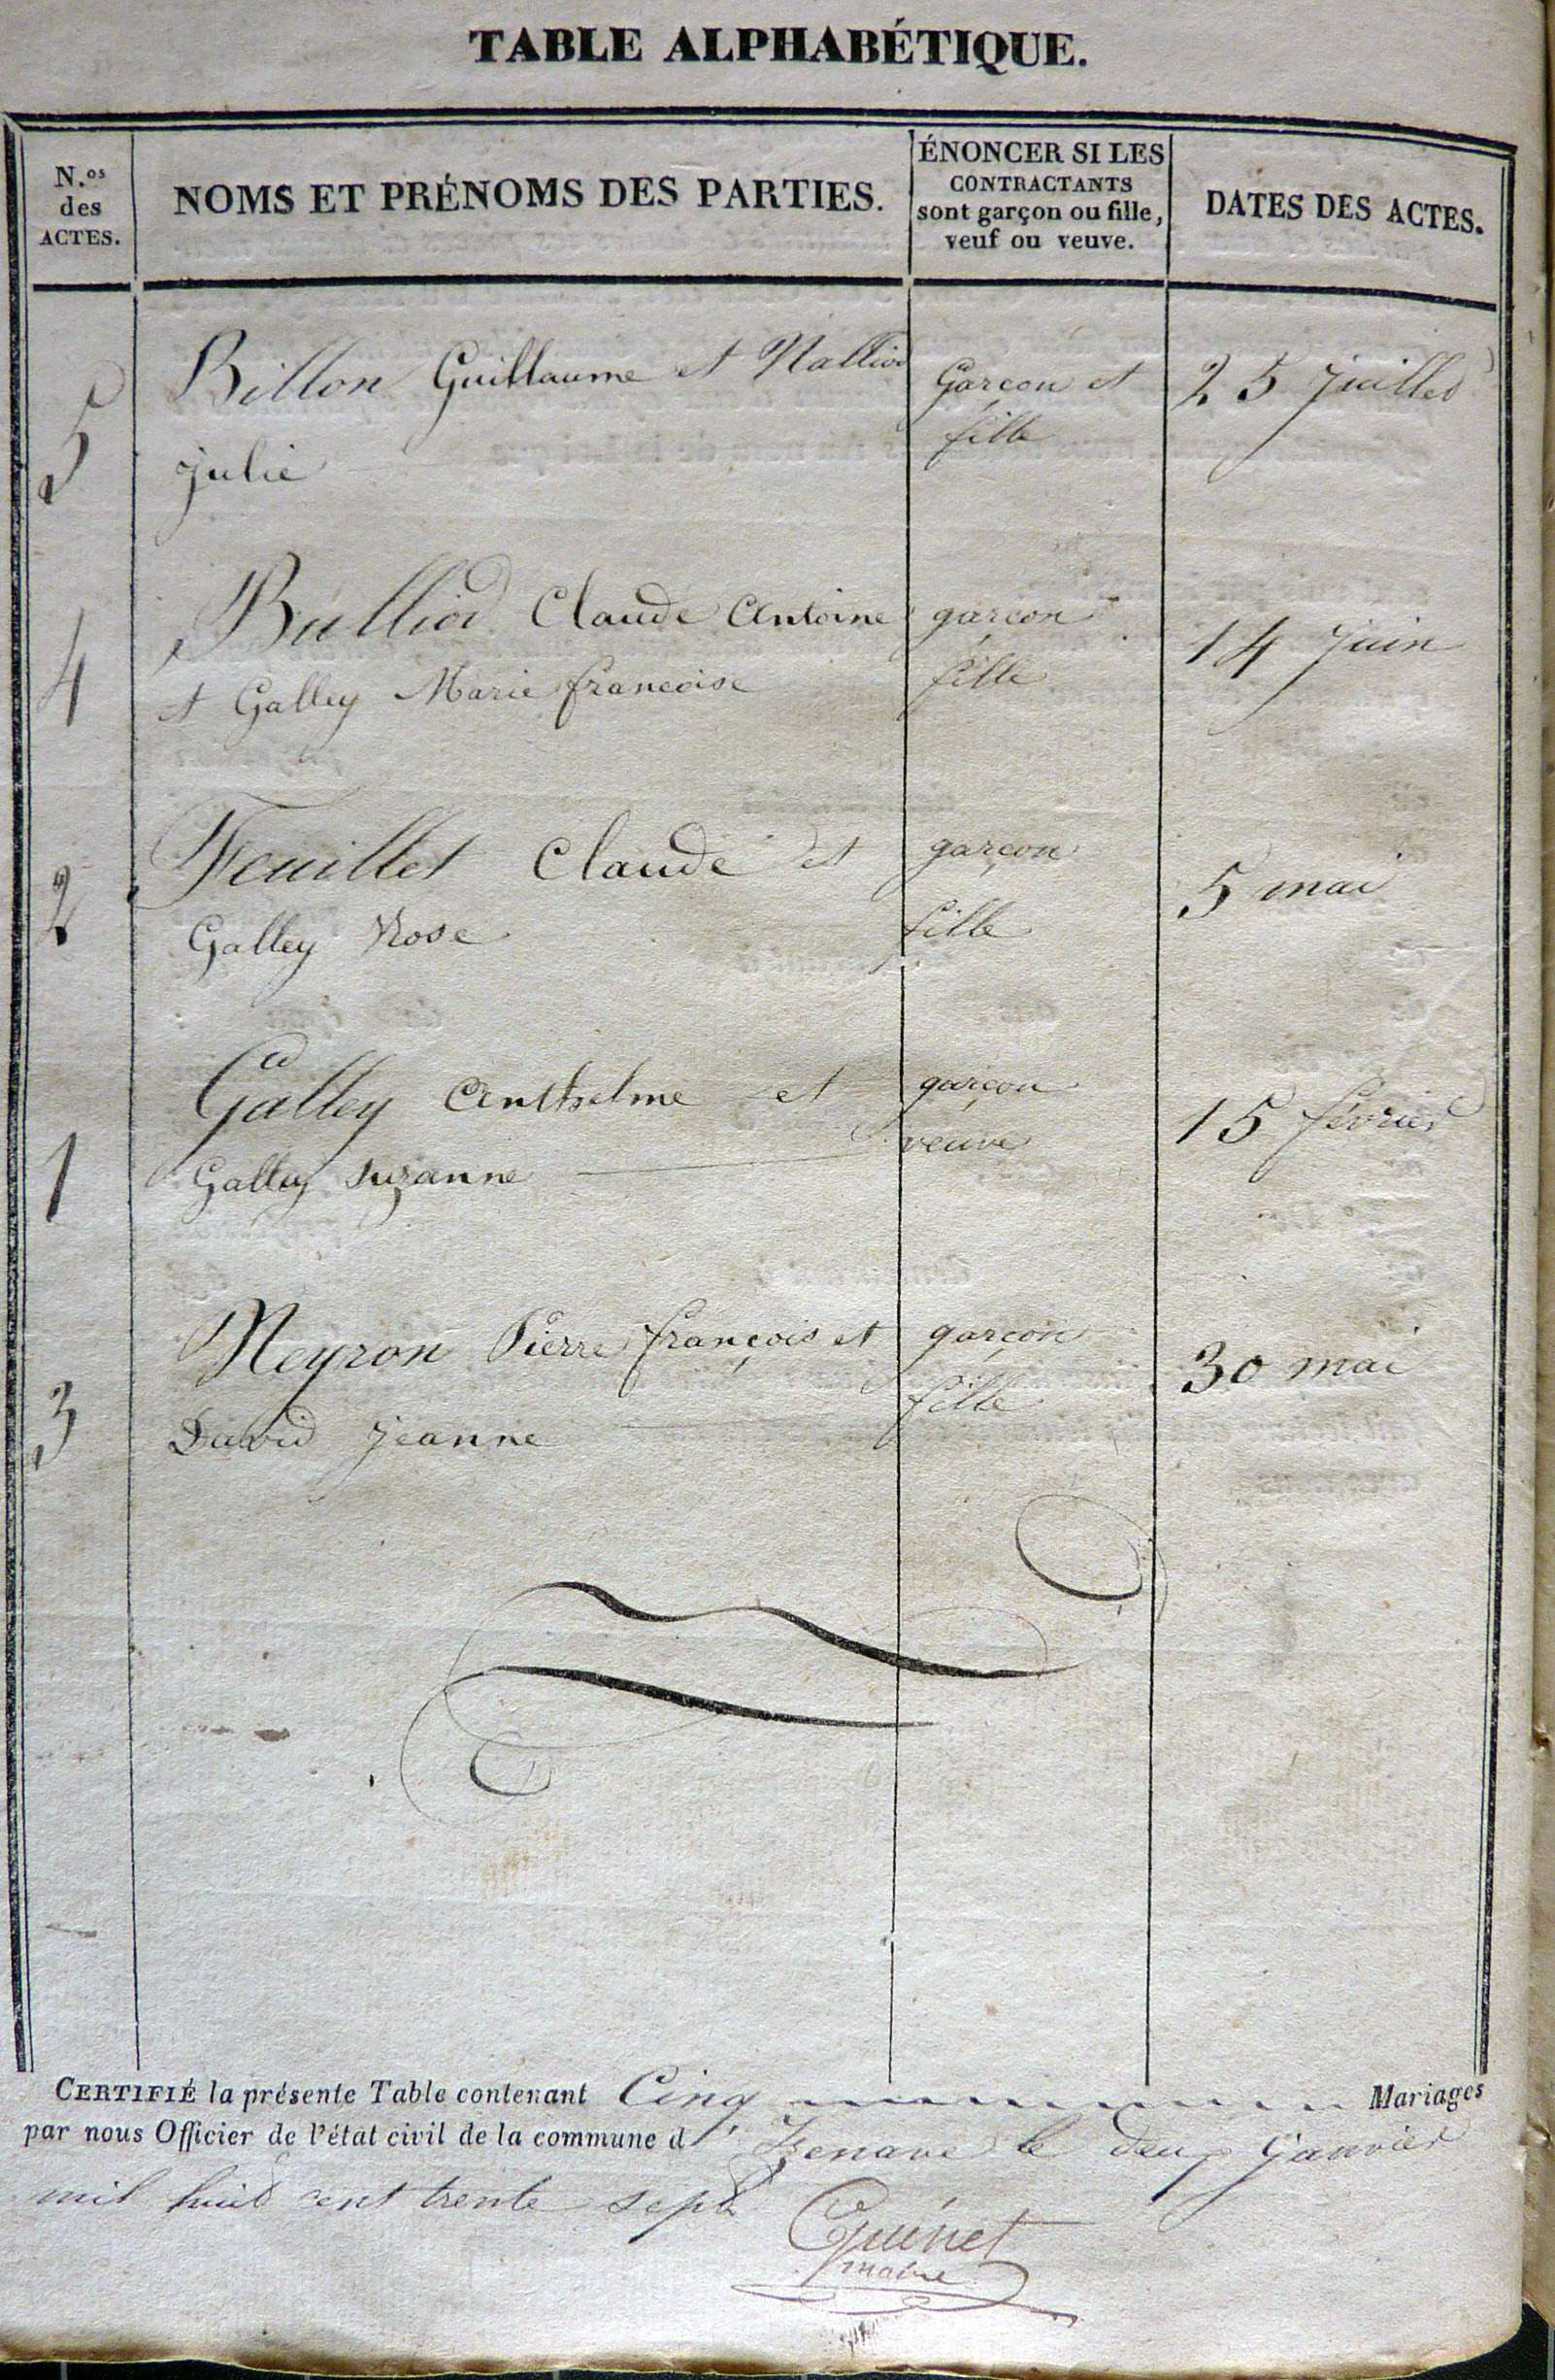 TABLE ALPHABÉTIQUE.
N.os des ACTES.
NOMS ET PRÉNOMS DES PARTIES.
ÉNONCER SI LES
CONTRACTANTS
sont garçon ou fille,
veuf ou veuve.
DATES DES ACTES.
5
Billon Guillaume et Nalliod
Julie
Garçon et
fille
25 Juillet
4
Bulliod Claude Antoine
et Galley Marie françoise
garçon
fille
14 Juin
2
Feuillet Claude et
Galley Rose
garçon
fille
5 mai
1
Galley Anthelme et
Galley Suzanne
garçon
veuve
15 février
3
Neyron Pierre françois et
David Jeanne
garçon
fille
30 mai
CERTIFIÉ la présente Table contenant Cinq Mariages
par nous Officier de l'état civil de la commune d'Izenave le deux Janvier
mil huit cent trente sept
Guinet
maire